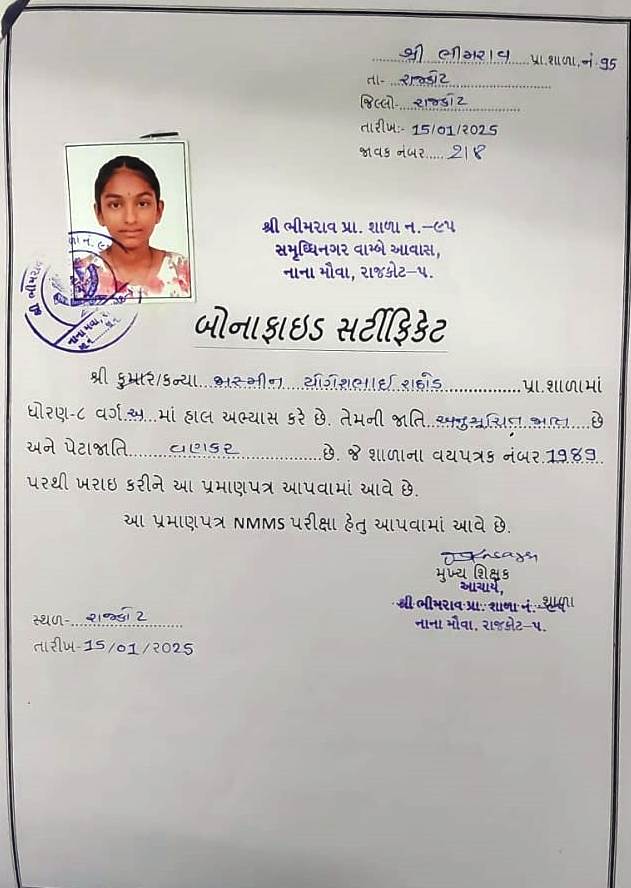 શ્રી ભીમરાવ પ્રા.શાળા.નં.95
તા- રાજકોટ
જિલ્લો- રાજકોટ
તારીખ:- 15/01/2025
જાવક નંબર..... 218
શ્રી ભીમરાવ પ્રા. શાળા ન.-૯૫
સમૃધ્ધિનગર વામ્બે આવાસ,
નાના મૌવા, રાજકોટ-૫.
બોનાફાઇડ સર્ટીફિકેટ
શ્રી કુમાર/કન્યા જાસ્મીન યોગેશભાઈ રાઠોડ પ્રા.શાળામાં
ધોરણ-૮ વર્ગ અ માં હાલ અભ્યાસ કરે છે. તેમની જાતિ અનુસૂચિત જાતિ છે
અને પેટાજાતિ વણકર છે. જે શાળાના વયપત્રક નંબર 1989
પરથી ખરાઇ કરીને આ પ્રમાણપત્ર આપવામાં આવે છે.
આ પ્રમાણપત્ર NMMS પરીક્ષા હેતુ આપવામાં આવે છે.
મુખ્ય શિક્ષક
આચાર્ય,
શ્રી ભીમરાવ પ્રા. શાળા નં. શાળા
નાના મૌવા. રાજકોટ-૫.
સ્થળ- રાજકોટ
તારીખ-15/01/2025